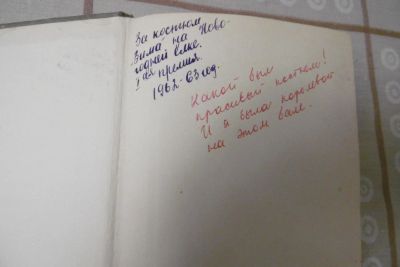 За костюм
Зима, на Ново-
годней елке.
! ая премия.
1962-63 год.
Какой был
красивый костюм!
И я была королевой
на этом бале.